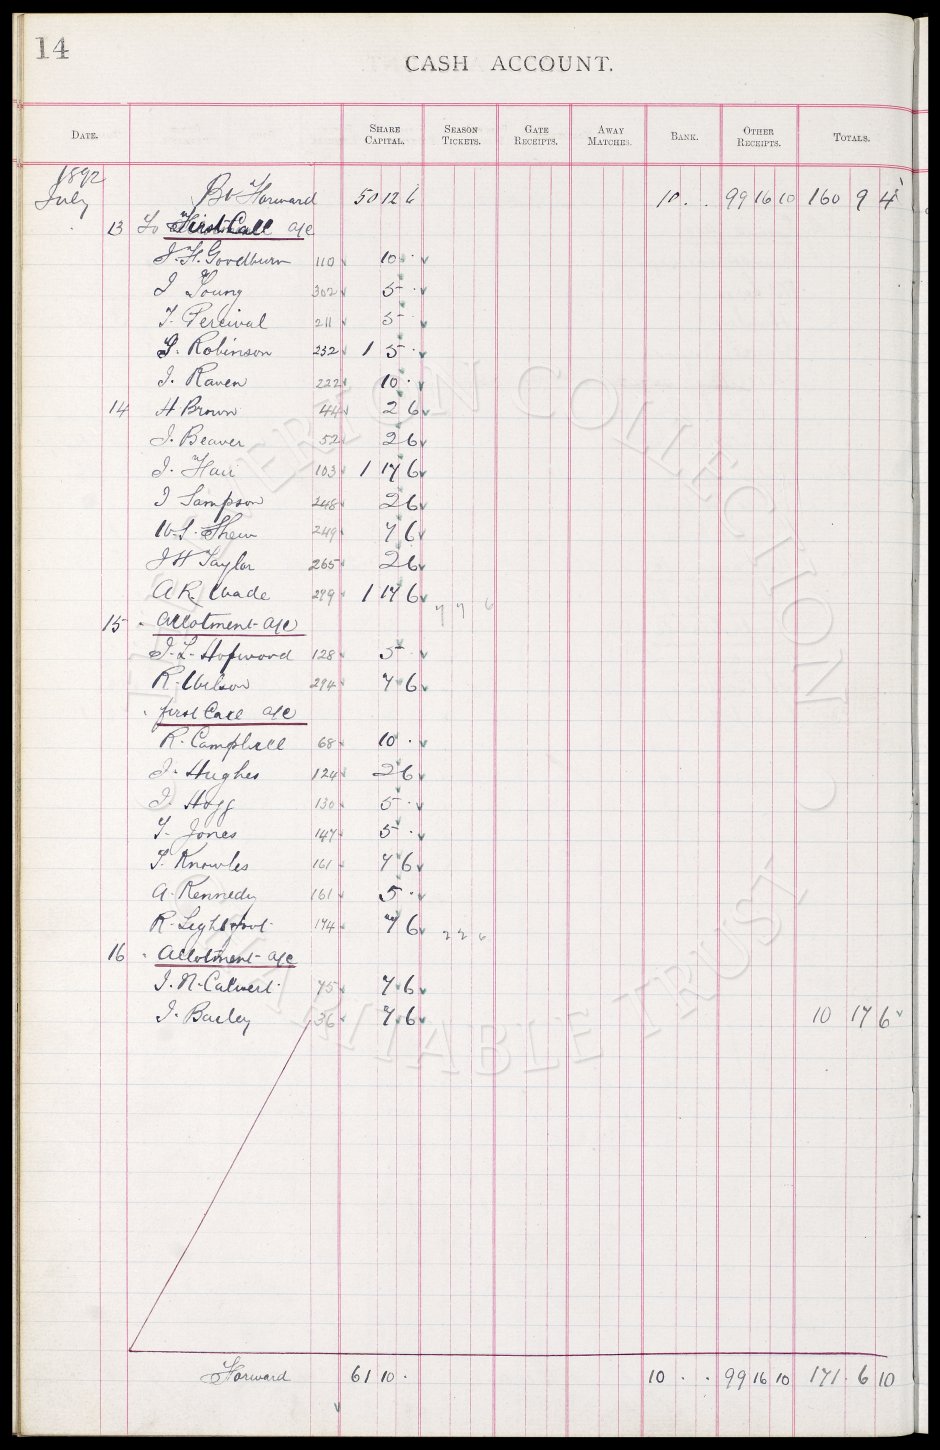 14
CASH ACCOUNT.
DATE. SHARE CAPITAL. SEASON TICKETS. GATE RECEIPTS. AWAY MATCHES. BANK. OTHER RECEIPTS. TOTALS.
1892
July Bt Forward 50 12 6 10 . . 99 16 10 160 9 4
13 To First Call a/c
J. H. Goodburn 110 10 .
J Young 302 5 .
T. Percival 211 5 .
G. Robinson 232 1 5 .
J. Raven 222 10 .
14 H Brown 44 2 6
J. Beaver 52 2 6
J. Hair 103 1 17 6
J Sampson 248 2 6
W. S. 249 7 6
J H Taylor 265 2 6
A R. Wade 279 1 17 6 7 7 6
15 " Allotment a/c
J. L. Hopwood 128 5 .
R. Wilson 294 7 6
" first Call a/c
R. Campbell 68 10 .
J. Hughes 124 2 6
J. Hogg 130 5 .
T. Jones 147 5 .
T. Knowles 161 7 6
A. Kennedy 161 5 .
R. Lightfoot 174 7 6 2 2 6
16 " Allotment a/c
J. N. Calvert 75 7 6
J. Bailey 36 7 6 10 17 6
Forward 61 10 . 10 . . 99 16 10 171 . 6 10
EVERTON COLLECTION
CHARITABLE TRUST